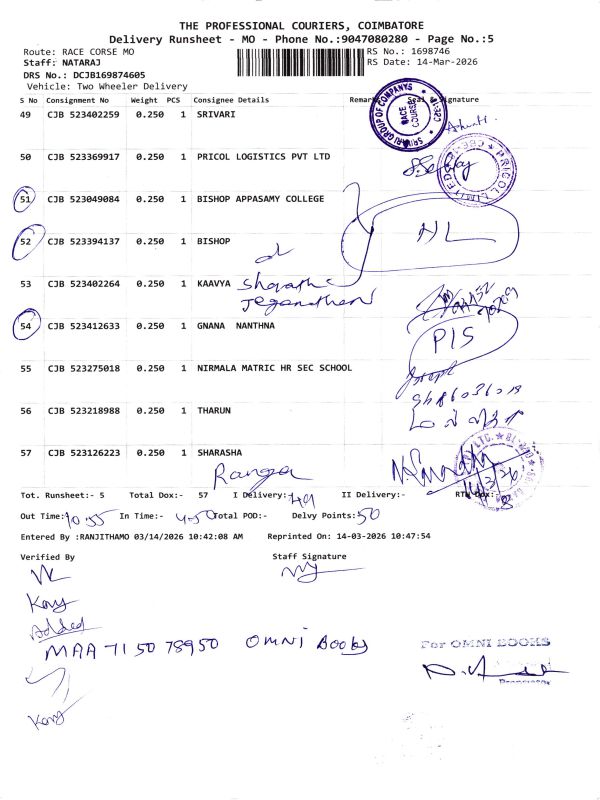 THE PROFESSIONAL COURIERS, COIMBATORE
Delivery Runsheet - MO - Phone No.:9047080280 - Page No.:5
Route: RACE CORSE MO RS No.: 1698746
Staff: NATARAJ RS Date: 14-Mar-2026
DRS No.: DCJB169874605
Vehicle: Two Wheeler Delivery
S No Consignment No Weight PCS Consignee Details Remarks Seal & Signature
49 CJB 523402259 0.250 1 SRIVARI
SRIVARI GROUP OF COMPANYS RACE COURSE
50 CJB 523369917 0.250 1 PRICOL LOGISTICS PVT LTD
PRICOL LIMITED
51 CJB 523049084 0.250 1 BISHOP APPASAMY COLLEGE
52 CJB 523394137 0.250 1 BISHOP
NL
53 CJB 523402264 0.250 1 KAAVYA
54 CJB 523412633 0.250 1 GNANA NANTHNA
PIS
55 CJB 523275018 0.250 1 NIRMALA MATRIC HR SEC SCHOOL
Joseph
56 CJB 523218988 0.250 1 THARUN
57 CJB 523126223 0.250 1 SHARASHA
Ranga
14/3/26
Tot. Runsheet:- 5 Total Dox:- 57 I Delivery:- 49 II Delivery:- RTN Dox:- 8
Out Time: 10:55 In Time:- 4.50 Total POD:- Delvy Points: 50
Entered By :RANJITHAMO 03/14/2026 10:42:08 AM Reprinted On: 14-03-2026 10:47:54
Verified By Staff Signature
Added
MAA 7150 78950 OMNI Books
For OMNI BOOKS